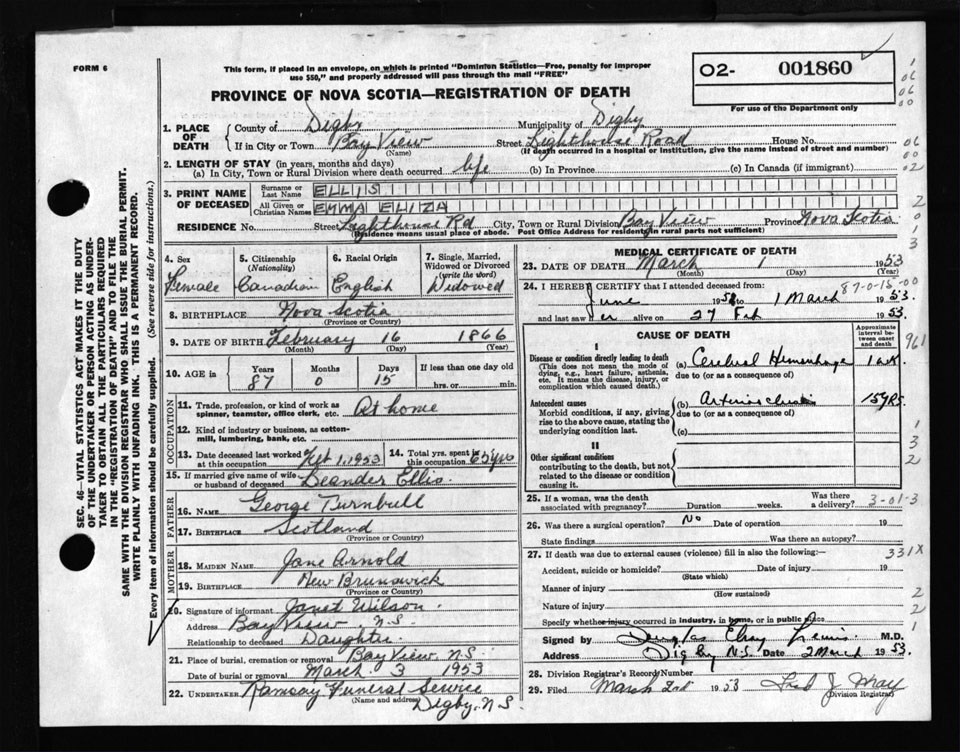 FORM 6
This form, if placed in an envelope, on which is printed "Dominion Statistics—Free, penalty for improper
use $50," and properly addressed will pass through the mail "FREE"
PROVINCE OF NOVA SCOTIA—REGISTRATION OF DEATH
O2- 001860
For use of the Department only
1. PLACE OF DEATH
County of Digby Municipality of Digby
If in City or Town Bay View Street Lighthouse Road House No.
(Name) (If death occurred in a hospital or institution, give the name instead of street and number)
2. LENGTH OF STAY (in years, months and days)
(a) In City, Town or Rural Division where death occurred life (b) In Province (c) In Canada (if immigrant)
3. PRINT NAME OF DECEASED
Surname or Last Name ELLIS
All Given or Christian Names EMMA ELIZA
RESIDENCE No. Street Lighthouse Rd City, Town or Rural Division Bay View Province Nova Scotia
(Residence means usual place of abode. Post Office Address for residents in rural parts not sufficient)
4. Sex
Female
5. Citizenship
(Nationality)
Canadian
6. Racial Origin
English
7. Single, Married,
Widowed or Divorced
(write the word)
Widowed
8. BIRTHPLACE Nova Scotia
(Province or Country)
9. DATE OF BIRTH February 16 1866
(Month) (Day) (Year)
10. AGE in Years Months Days If less than one day old
87 0 15 hrs. or min.
OCCUPATION
11. Trade, profession, or kind of work as
spinner, teamster, office clerk, etc. At home
12. Kind of industry or business, as cotton-
mill, lumbering, bank, etc.
13. Date deceased last worked
at this occupation Feb 1, 1953
14. Total yrs. spent in
this occupation 65 yrs
15. If married give name of wife
or husband of deceased Leander Ellis
FATHER
16. NAME George Turnbull
17. BIRTHPLACE Scotland
(Province or Country)
MOTHER
18. MAIDEN NAME Jane Arnold
19. BIRTHPLACE New Brunswick
(Province or Country)
20. Signature of informant Janet Wilson
Address Bay View N.S
Relationship to deceased Daughter
21. Place of burial, cremation or removal Bay View, NS
Date of burial or removal March 3 1953
22. UNDERTAKER Ramsay Funeral Service
(Name and address) Digby, N.S.
MEDICAL CERTIFICATE OF DEATH
23. DATE OF DEATH March 1 1953
(Month) (Day) (Year)
87-0-15-00
24. I HEREBY CERTIFY that I attended deceased from:
June 19 to 1 March 1953.
and last saw her alive on 27 Feb 1953.
CAUSE OF DEATH
Approximate
interval be-
tween onset
and death
I
Disease or condition directly leading to death
(This does not mean the mode of
dying, e.g., heart failure, asthenia,
etc. It means the disease, injury, or
complication which caused death.)
(a) Cerebral Hemorrhage 1 wk.
due to (or as a consequence of)
Antecedent causes
Morbid conditions, if any, giving
rise to the above cause, stating the
underlying condition last.
(b) 15 yrs.
due to (or as a consequence of)
(c)
II
Other significant conditions
contributing to the death, but not
related to the disease or condition
causing it.
25. If a woman, was the death
associated with pregnancy? Duration weeks. Was there
a delivery? 3-01-3
26. Was there a surgical operation? No Date of operation 19
State findings Was there an autopsy?
27. If death was due to external causes (violence) fill in also the following:— 331X
Accident, suicide or homicide? Date of injury 19
(State which)
Manner of injury
(How sustained)
Nature of injury
Specify whether injury occurred in industry, in home, or in public place
Signed by Douglas Lewis M.D.
Address Digby N.S. Date 2 March 1953.
28. Division Registrar's Record Number
29. Filed March 2nd 1953 Fred J May
(Division Registrar)
SEC. 46—VITAL STATISTICS ACT MAKES IT THE DUTY
OF THE UNDERTAKER OR PERSON ACTING AS UNDER-
TAKER TO OBTAIN ALL THE PARTICULARS REQUIRED
IN THE "REGISTRATION OF DEATH" AND TO FILE THE
SAME WITH THE DIVISION REGISTRAR WHO SHALL ISSUE THE BURIAL PERMIT.
WRITE PLAINLY WITH UNFADING INK. THIS IS A PERMANENT RECORD.
Every item of information should be carefully supplied. (See reverse side for instructions.)
1
06
06
00
06
00
02
2
0
1
3
961
1
3
2
2
2
1